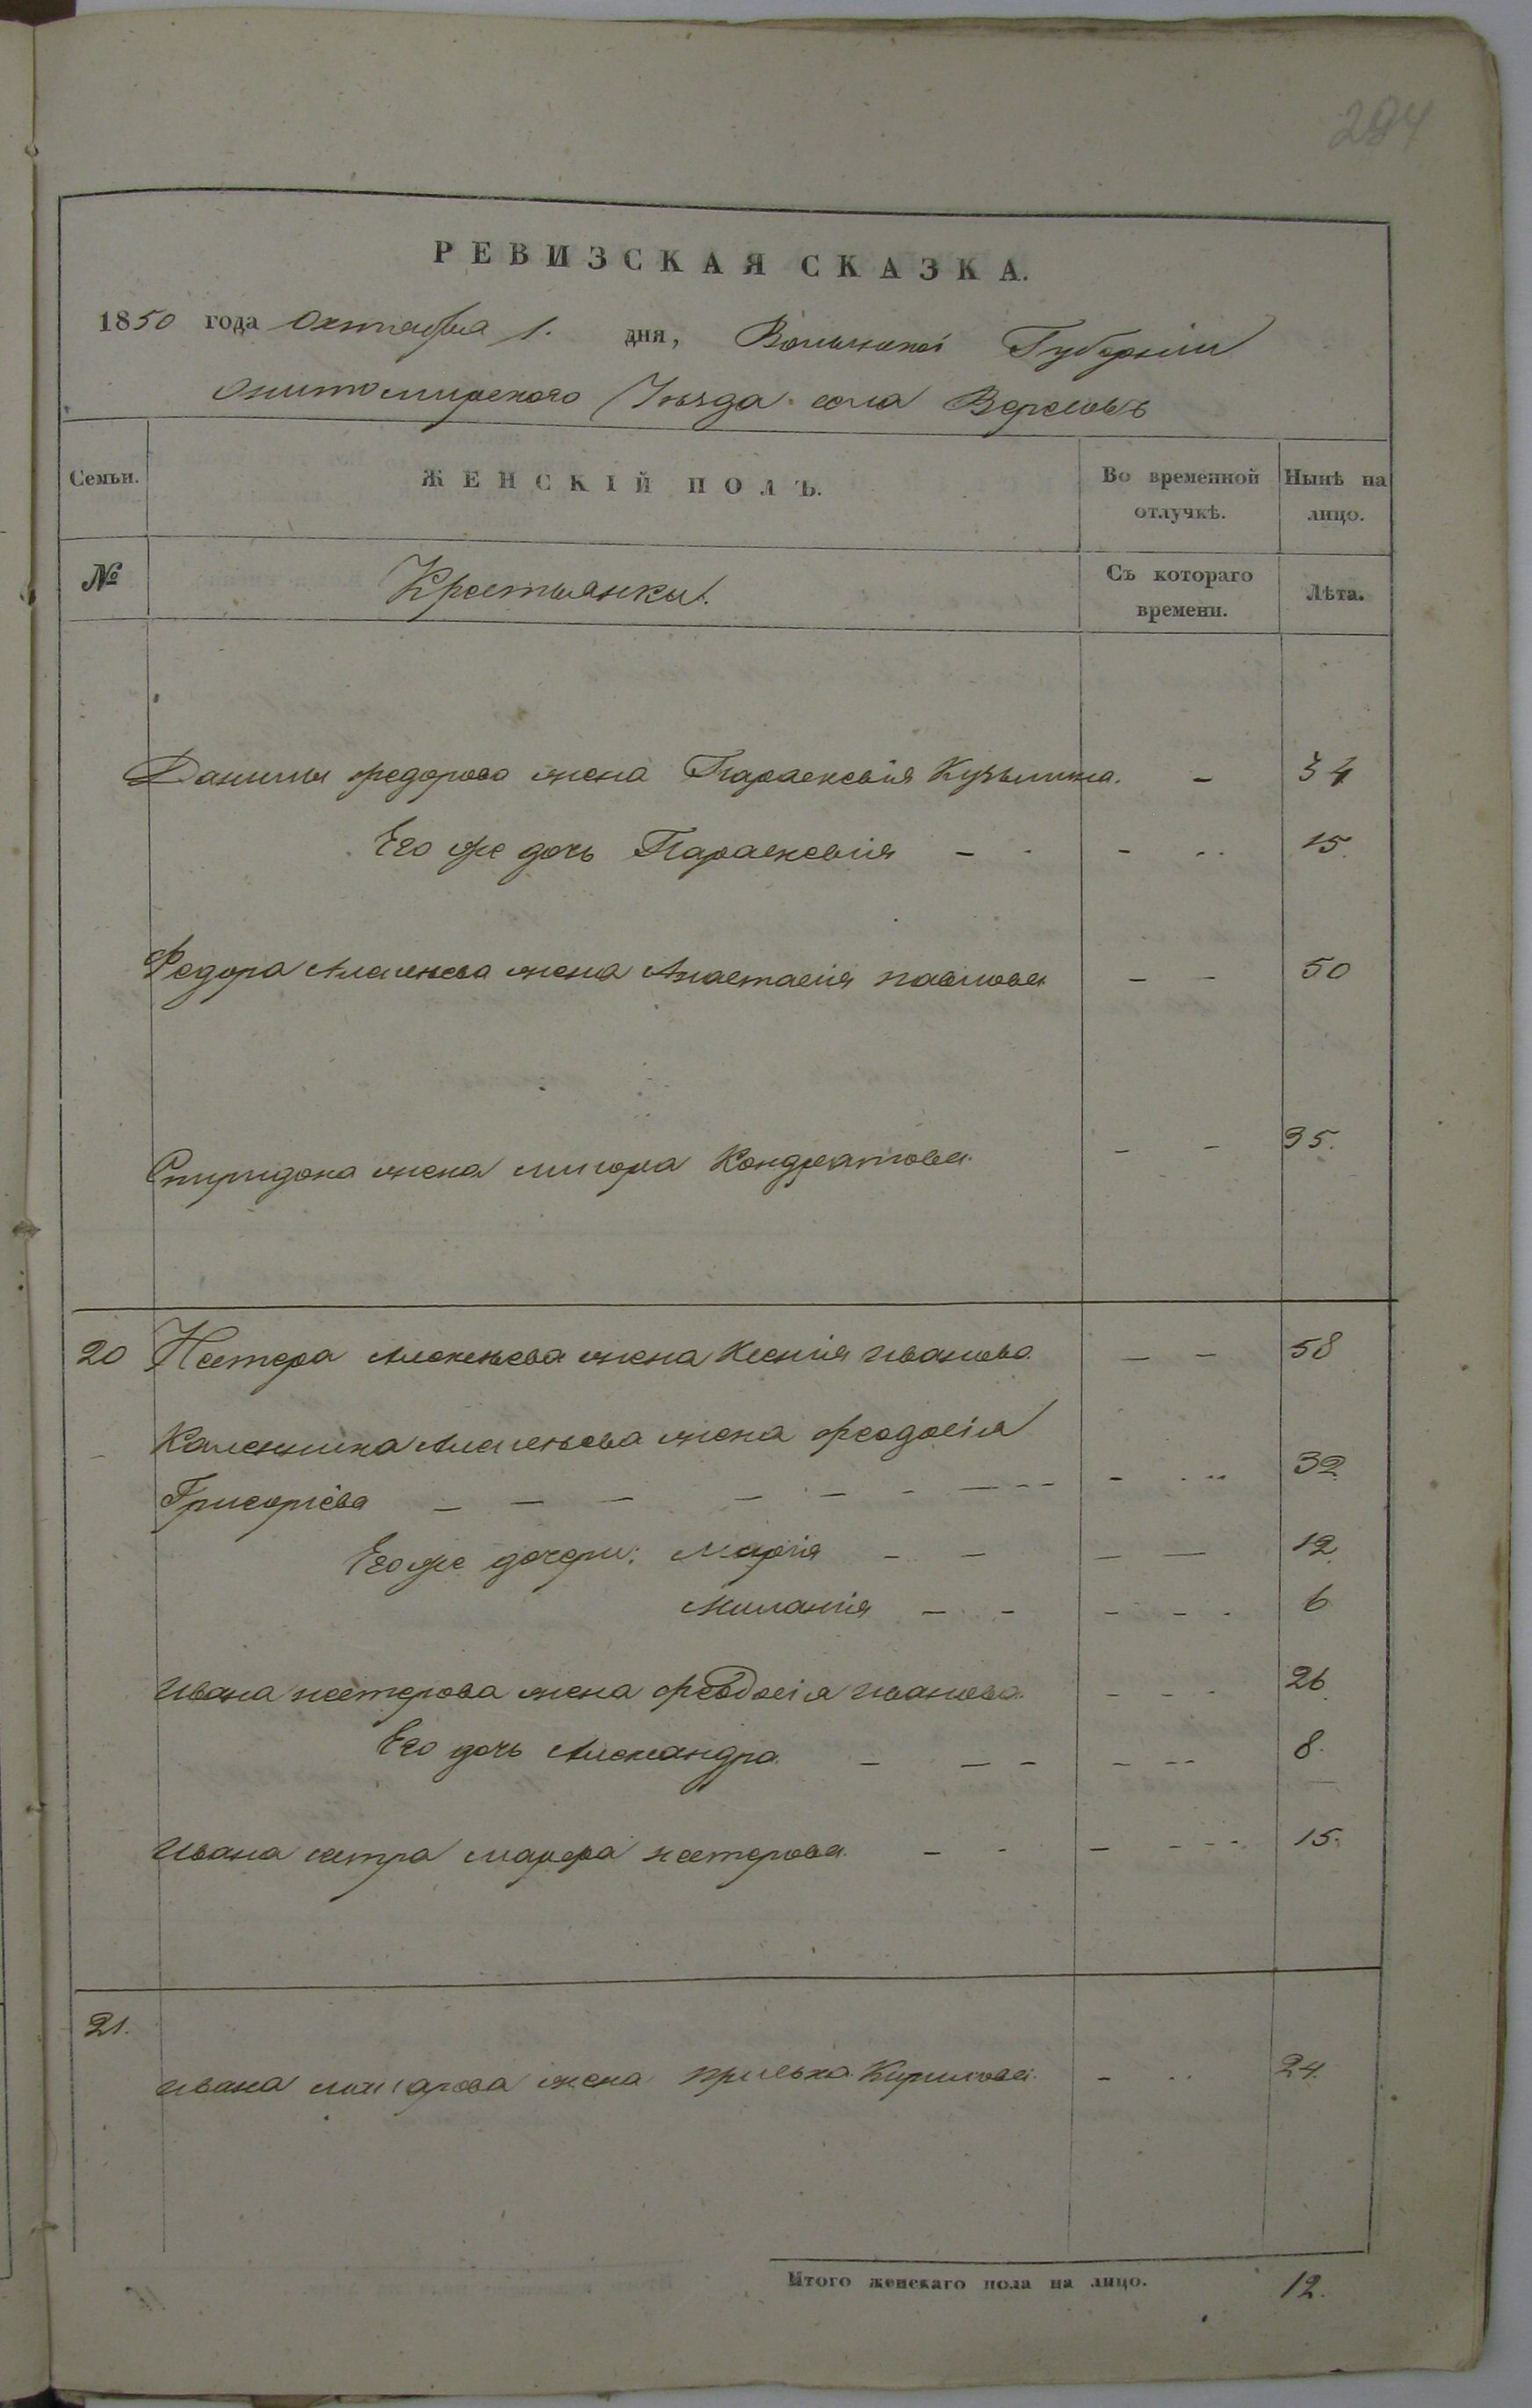 284
РЕВИЗСКАЯ СКАЗКА.
1850 года Октября 1. дня, Волынской Губернiи
Житомирского Уѣзда села
Семьи.
ЖЕНСКIЙ ПОЛЪ.
Во временной отлучкѣ.
Нынѣ на лицо.
№
Крестьянки.
Съ котораго времени.
Лѣта.
Данилы федорова жена Параскевiя Кузьмина. - 34
Его же дочь Параскевiя - - - - 15.
Федора Алексѣева жена Анастасiя павлова - - 50
Спиридона жена Кондратова - - 35.
20 Нестера Алексѣева жена Ксенiя иванова - - 58
Каленика Алексѣева жена феодосiя
Григорiева - - - - - - - - - 32
Его же дочери: Марiя - - - - 12
Миланiя - - - - - 6
Ивана нестерова жена феодосiя иванова - - - 26
Его дочь Александра - - - - - 8.
Ивана сестра марфа нестерова - - - - - 15.
21.
ивана жена Кирилова - - 24.
Итого женскаго пола на лицо. 12.